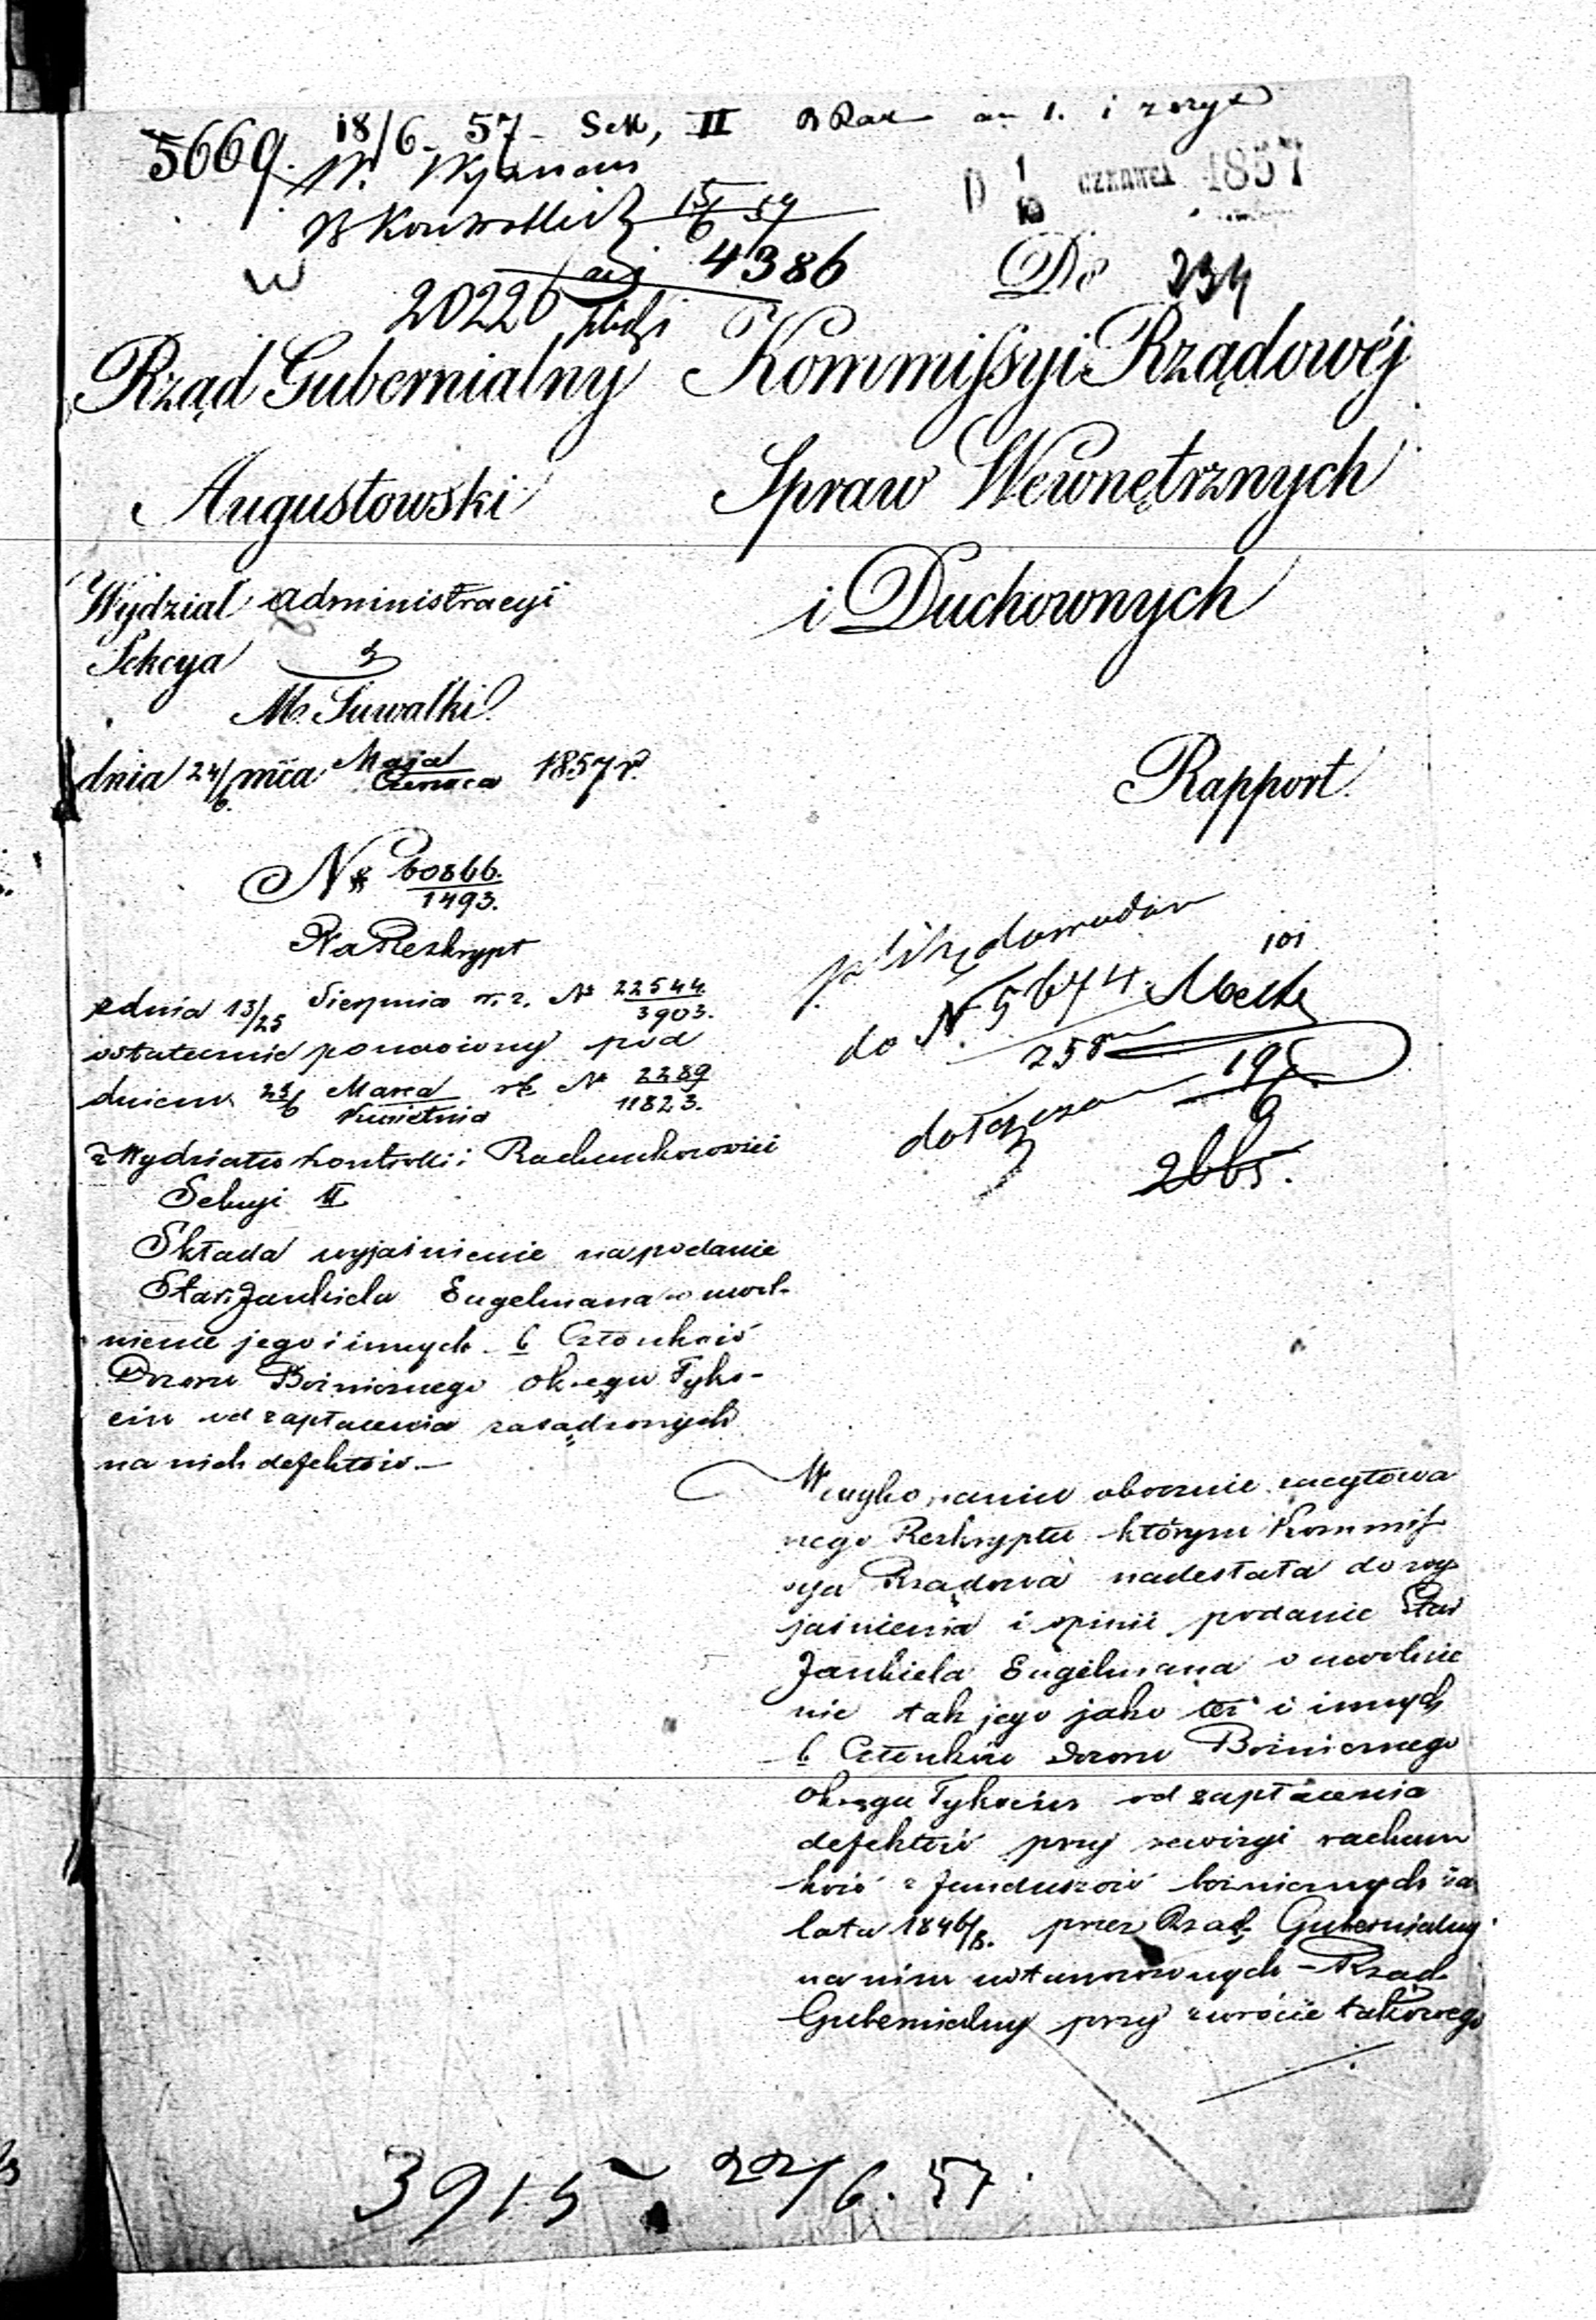 5669. 18/6 57 Sek, II
1 czerwca 1857
15/6 57
4386
20226
Do 234
Rząd Gubernialny
Augustowski
Kommissyi Rządowéj
Spraw Wewnętrznych
i Duchownych
Wydział administracyi
Sekcya
M. Suwałki.
dnia 24/6 mca Maja/Czerwca 1857 r.
Rapport.
No 60866./1493.
Na Reskrypt
z dnia 13/25 Sierpnia r. z. No 22544/3903.
ostatecznie ponowiony pod
dniem Marca/Kwietnia rb. No 2289/11823.
z Wydziału Kontrolli i Rachunkowości
Sekcyi II
Składa wyjaśnienie na podanie
Star. Jankiela Engelmana o uwol-
nienie jego i innych 6 Członków
Dozoru Bożniczego Okręgu Tyko-
cin od zapłacenia zasądzonych
na nich defektów.—
do N. 5674
258
dołączam
2665.
W wykonaniu obocznie zacytowa
nego Reskryptu którym Kommis
sya Rządowa nadesłała do wy
jaśnienia i opinii podanie Star
Jankiela Engelmana o uwolnie
nie tak jego jako też i innych
6 Członków Dozoru Bożniczego
Okręgu Tykocin od zapłacenia
defektów przy rewizyi rachun
ków z funduszów bożniczych za
lata 1846/8. przez Rząd Gubernialny
na nim ustanowionych — Rząd
Gubernialny przy zwrocie takowego
3915. 22/6. 57.